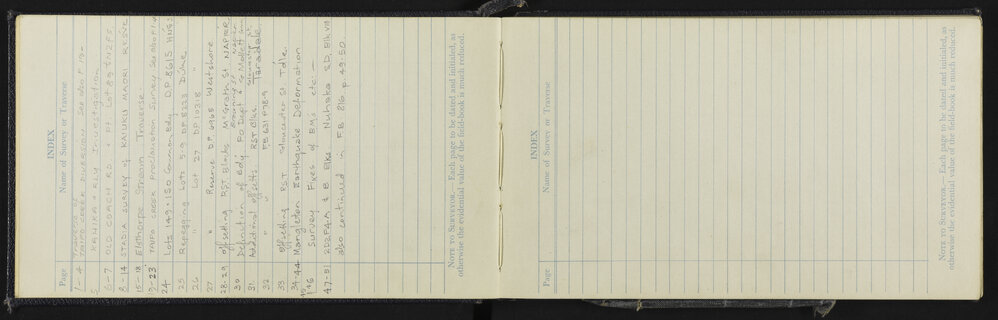 INDEX
Page Name of Survey or Traverse
1-4 TAIPO CREEK DIVERSION See also P. 19-
5 KAHIKA & RLY Investigation
6-7 OLD COACH RD & Pt Lot
8-14 STADIA SURVEY of KAIUKU MAORI RESVE
15-18 Elsthorpe Stream Traverse
19-23 TAIPO CREEK PROCLAMATION SURVEY See also P 1-4
24 Lots 149-150 Common Bdy D.P. 8615 HNGS
25 Repegging Lots 5-9 DP 8323 Duke
26 " Lot 27 DP 10318
27 " Reserve DP. 6968 Westshore
28-29 Offsetting RST Blocks McGrath St. NAPIER
30 Definition of Bdy P.O Dept
31 Additional offsets RST Blks
Taradale
32 " " FB 631 P 989
33 Offsetting RST Gloucester St T'dle.
34-44 Mangleton Earthquake Deformation
& 46 Survey Fixes of BMs etc:—
47-51 2D2P4A & B Blks Nuhaka SD, Blk VII
also continued in FB 816 p. 49-50.
NOTE TO SURVEYOR. — Each page to be dated and initialed, as
otherwise the evidential value of the field-book is much reduced.
INDEX
Page Name of Survey or Traverse
NOTE TO SURVEYOR. — Each page to be dated and initialed, as
otherwise the evidential value of the field-book is much reduced.